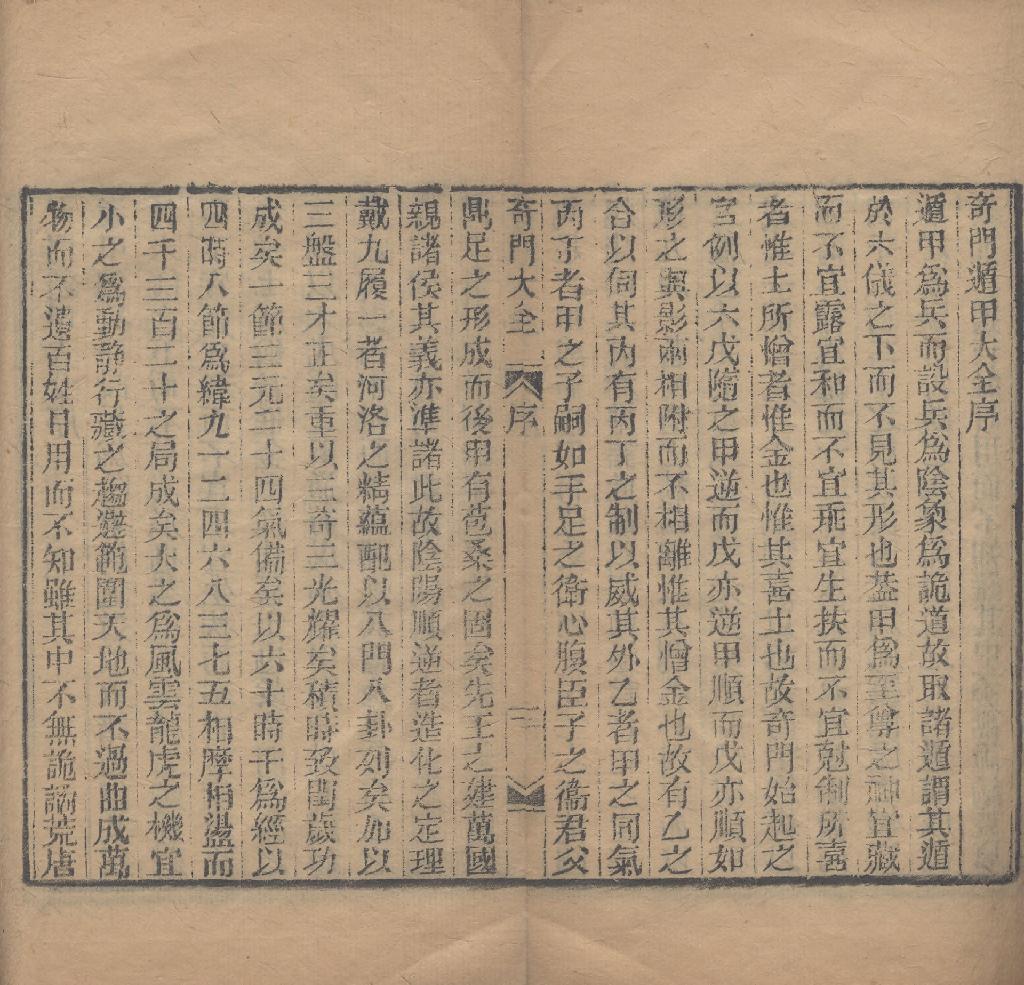 奇門遁甲大全序
遁甲爲兵而設兵爲陰象爲詭道故取諸遁謂其遁
於六儀之下而不見其形也葢甲爲至尊之神宜藏
而不宜露宜和而不宜乖宜生扶而不宜尅制所喜
者惟土所憎者惟金也惟其喜土也故奇門始起之
宮例以六戊隨之甲逆而戊亦逆甲順而戊亦順如
形之與影兩相附而不相離惟其憎金也故有乙之
合以伺其内有丙丁之制以威其外乙者甲之同氣
丙丁者甲之子嗣如手足之衛心腹臣子之衞君父
奇門大全 序 二
鼎足之形成而後甲有苞桑之固矣先王之建萬國
親諸侯其義亦準諸此故陰陽順逆者造化之定理
戴九履一者河洛之精蘊配以八門八卦列矣加以
三盤三才正矣重以三奇三光耀矣積時致閏歲功
成矣一節三元二十四氣備矣以六十時干爲經以
四時八節爲緯九一二四六八三七五相摩相盪而
四千三百二十之局成矣大之爲風雲龍虎之機宜
小之爲動静行藏之趨避範圍天地而不過曲成萬
物而不遺百姓日用而不知雖其中不無詭譎荒唐